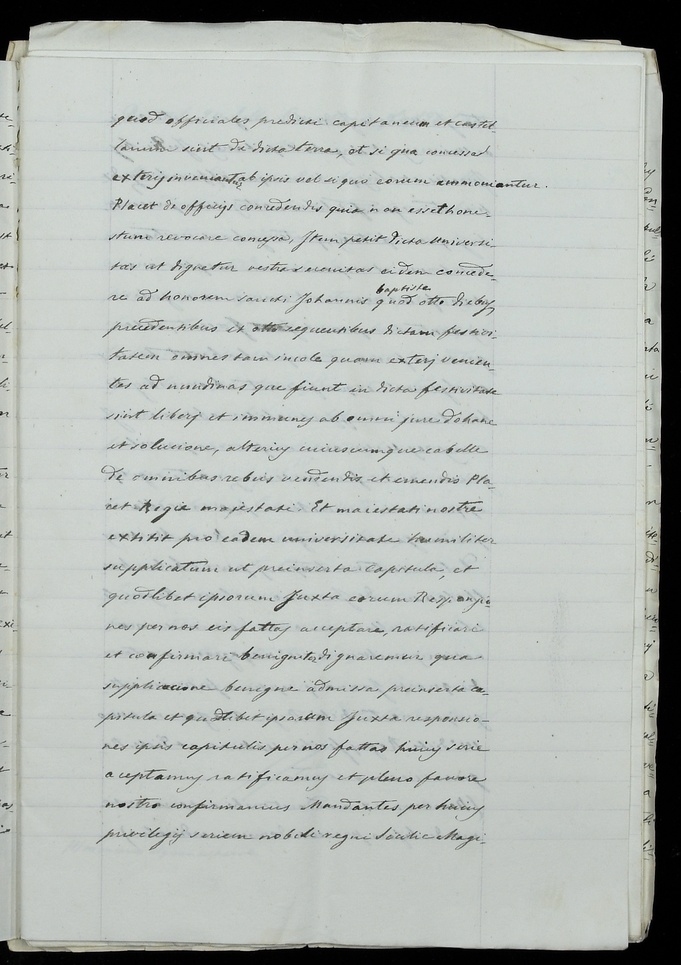 quod officiales predicti capitaneum et castel
lanum sint de dicta terra, et si qua concessa
exterij inveniantur ab ipsis vel si qui eorum ammoniantur.
Placet de officijs concedendis quia non esset hone-
stum revocare concessa, Item petit dicta Universi-
tas ut dignetur vestra serenitas eidem concede-
re ad honorem sancti Johannis baptiste quod otto diebus
precedentibus et otto sequentibus dictam festivi-
tatem omnes tam incole quam exterj venien-
tes ad nundinas que fiunt in dicta festivitate
sint liberj et immunes ab omni jure dohane
et solucione, alterius cuiuscumque cabelle
de omnibus rebus vendendis et emendis Pla-
cet Regie majestati Et maiestati nostre
extitit pro eadem universitate humiliter
supplicatum ut preinserta capitula, et
quodlibet ipsorum Juxta eorum Responsio-
nes per nos eis fattas acceptare, ratificari
et confirmari benignter dignaremur qua
supplicacione benigne admissa preinserta ca-
pitula et quodlibet ipsorum Juxta responsio-
nes ipsis capitulis per nos fattas huius serie
aceptamus ratificamus et pleno favore
nostro confirmamus Mandantes per huius
privilegij seriem nobili regni Sicilie Magi-